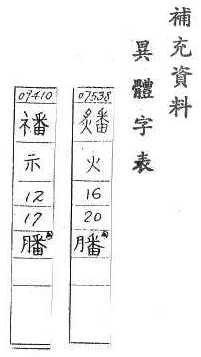 補充資料
異體字表
07538
火
16
20
膰
07410
示
12
17
膰